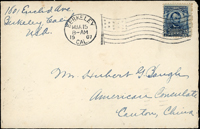 1601 Euclid Ave
Berkeley Cal
U.S.A.
BERKELEY
MAR 15
8-AM
19 07
CAL.
Mr. Herbert G. Baugh
American Consulate
Canton, China